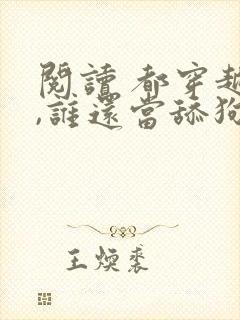 閱讀 都穿越
,誰還當舔狗
王煥裘